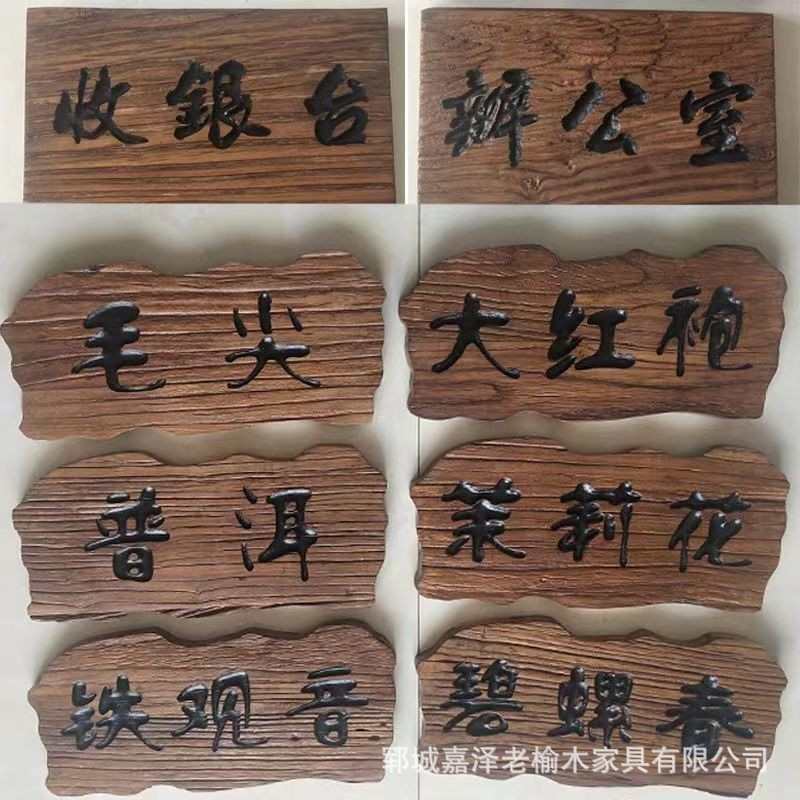 收銀台
辦公室
毛尖
大红袍
普洱
茉莉花
铁观音
碧螺春
郓城嘉泽老榆木家具有限公司